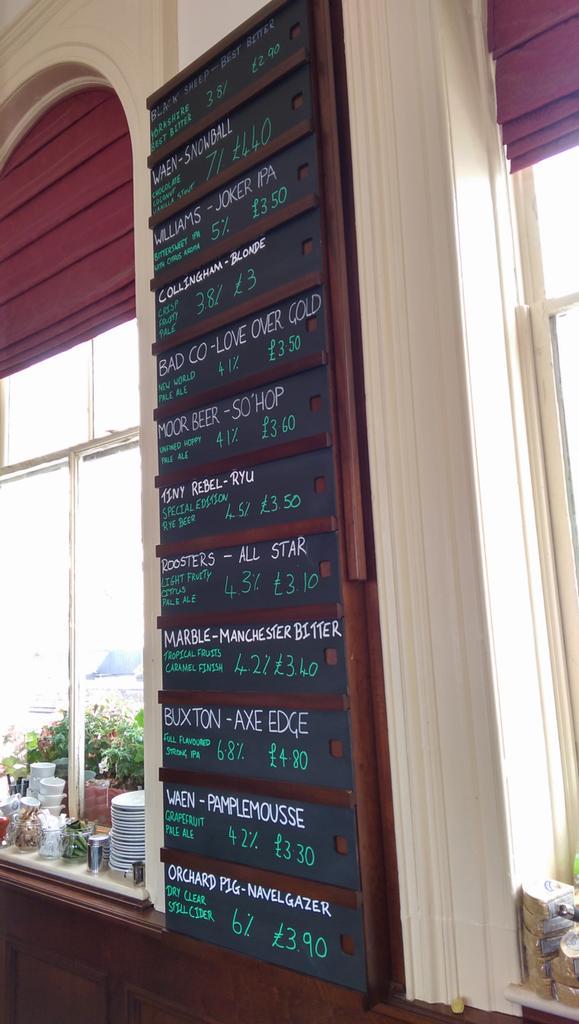 BLACK SHEEP - BEST BITTER
YORKSHIRE
BEST BITTER
3.8% £2.90
WAEN - SNOWBALL
CHOCOLATE
COCONUT
VANILLA STOUT
7% £4.40
WILLIAMS - JOKER IPA
BITTERSWEET IPA
WITH CITRUS AROMA
5% £3.50
COLLINGHAM - BLONDE
CRISP
FRUITY
PALE
3.8% £3
BAD CO - LOVE OVER GOLD
NEW WORLD
PALE ALE
4.1% £3.50
MOOR BEER - SO'HOP
UNFINED HOPPY
PALE ALE
4.1% £3.60
TINY REBEL - RYU
SPECIAL EDITION
RYE BEER
4.5% £3.50
ROOSTERS - ALL STAR
LIGHT FRUITY
CITRUS
PALE ALE
4.3% £3.10
MARBLE - MANCHESTER BITTER
TROPICAL FRUITS
CARAMEL FINISH
4.2% £3.40
BUXTON - AXE EDGE
FULL FLAVOURED
STRONG IPA
6.8% £4.80
WAEN - PAMPLEMOUSSE
GRAPEFRUIT
PALE ALE
4.2% £3.30
ORCHARD PIG - NAVELGAZER
DRY CLEAR
STILL CIDER
6% £3.90